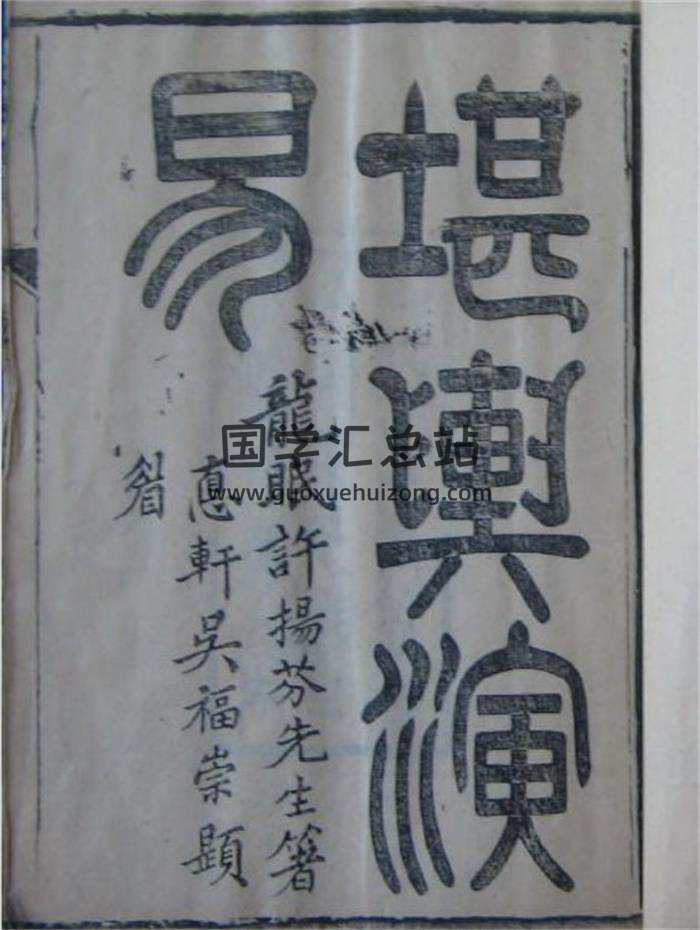 堪輿演
易
龍眠許揚芬先生著
惪軒吳福崇題
耑
国学汇总站
www.guoxuehuizong.com